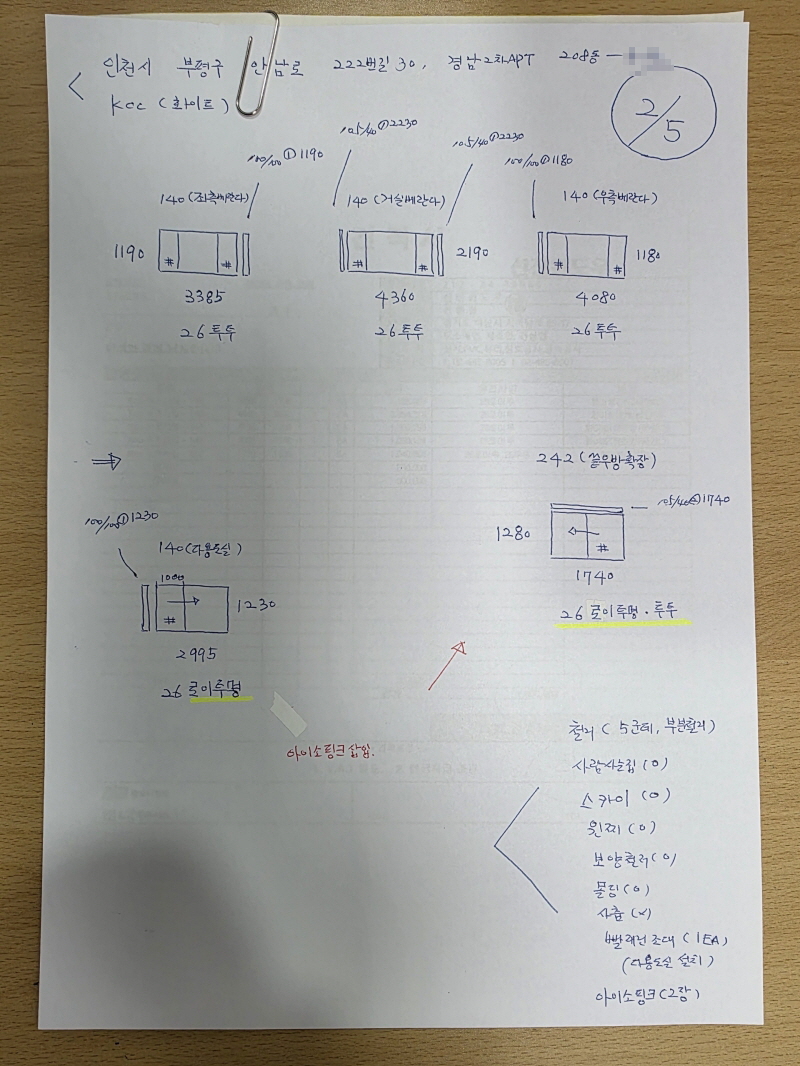 인천시 부평구 안남로 222번길 30, 경남2차APT 208동 -
kcc (화이트)
2/5
100/100 ① 1190
105/40 ① 2230
105/40 ① 2230
100/100 ① 1180
140 (좌측베란다)
140 (거실베란다)
140 (우측베란다)
1190
#
#
#
#
2190
#
#
1180
3385
4360
4080
26 투투
26 투투
26 투투
⇒
242 (쓸우방확장)
100/100 ① 1230
105/40 ② 1740
140 (다용도실)
1280
#
1000
1740
#
1230
26 로이투명·투투
2995
26 로이투명
아이소핑크 삽입.
철거 ( 5군데, 부분철거)
사람사는집 (O)
스카이 (O)
윈찌 (O)
보양철거 (O)
몰딩 (O)
사춤 (X)
빨래건조대 (1EA)
(다용도실 설치)
아이소핑크 (2장)